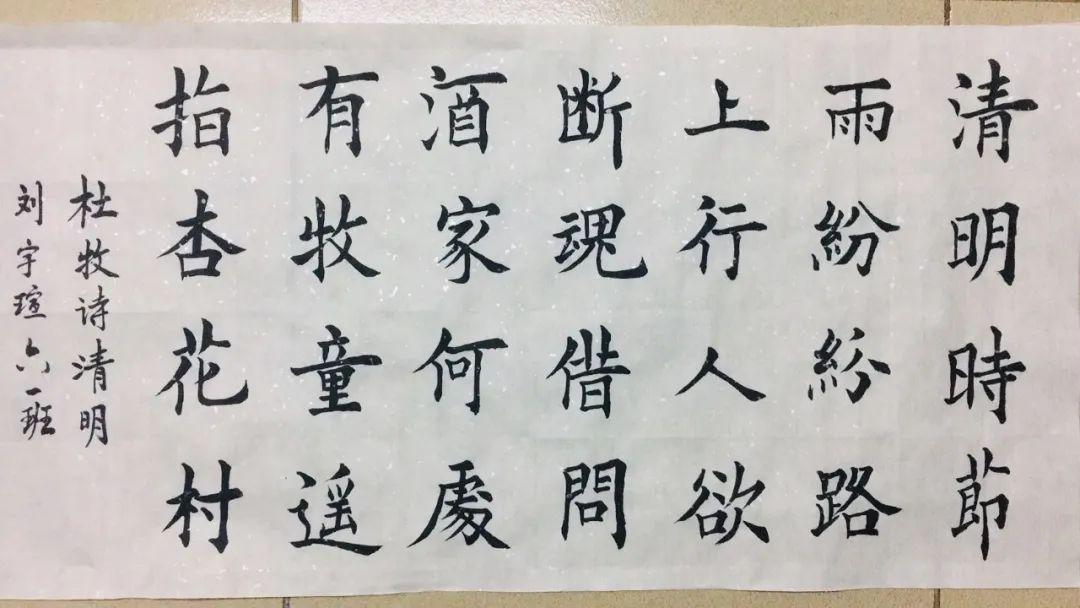 清明時節
雨紛紛路
上行人欲
断魂借問
酒家何處
有牧童遥
指杏花村
杜牧诗清明
刘宇瑄六一班